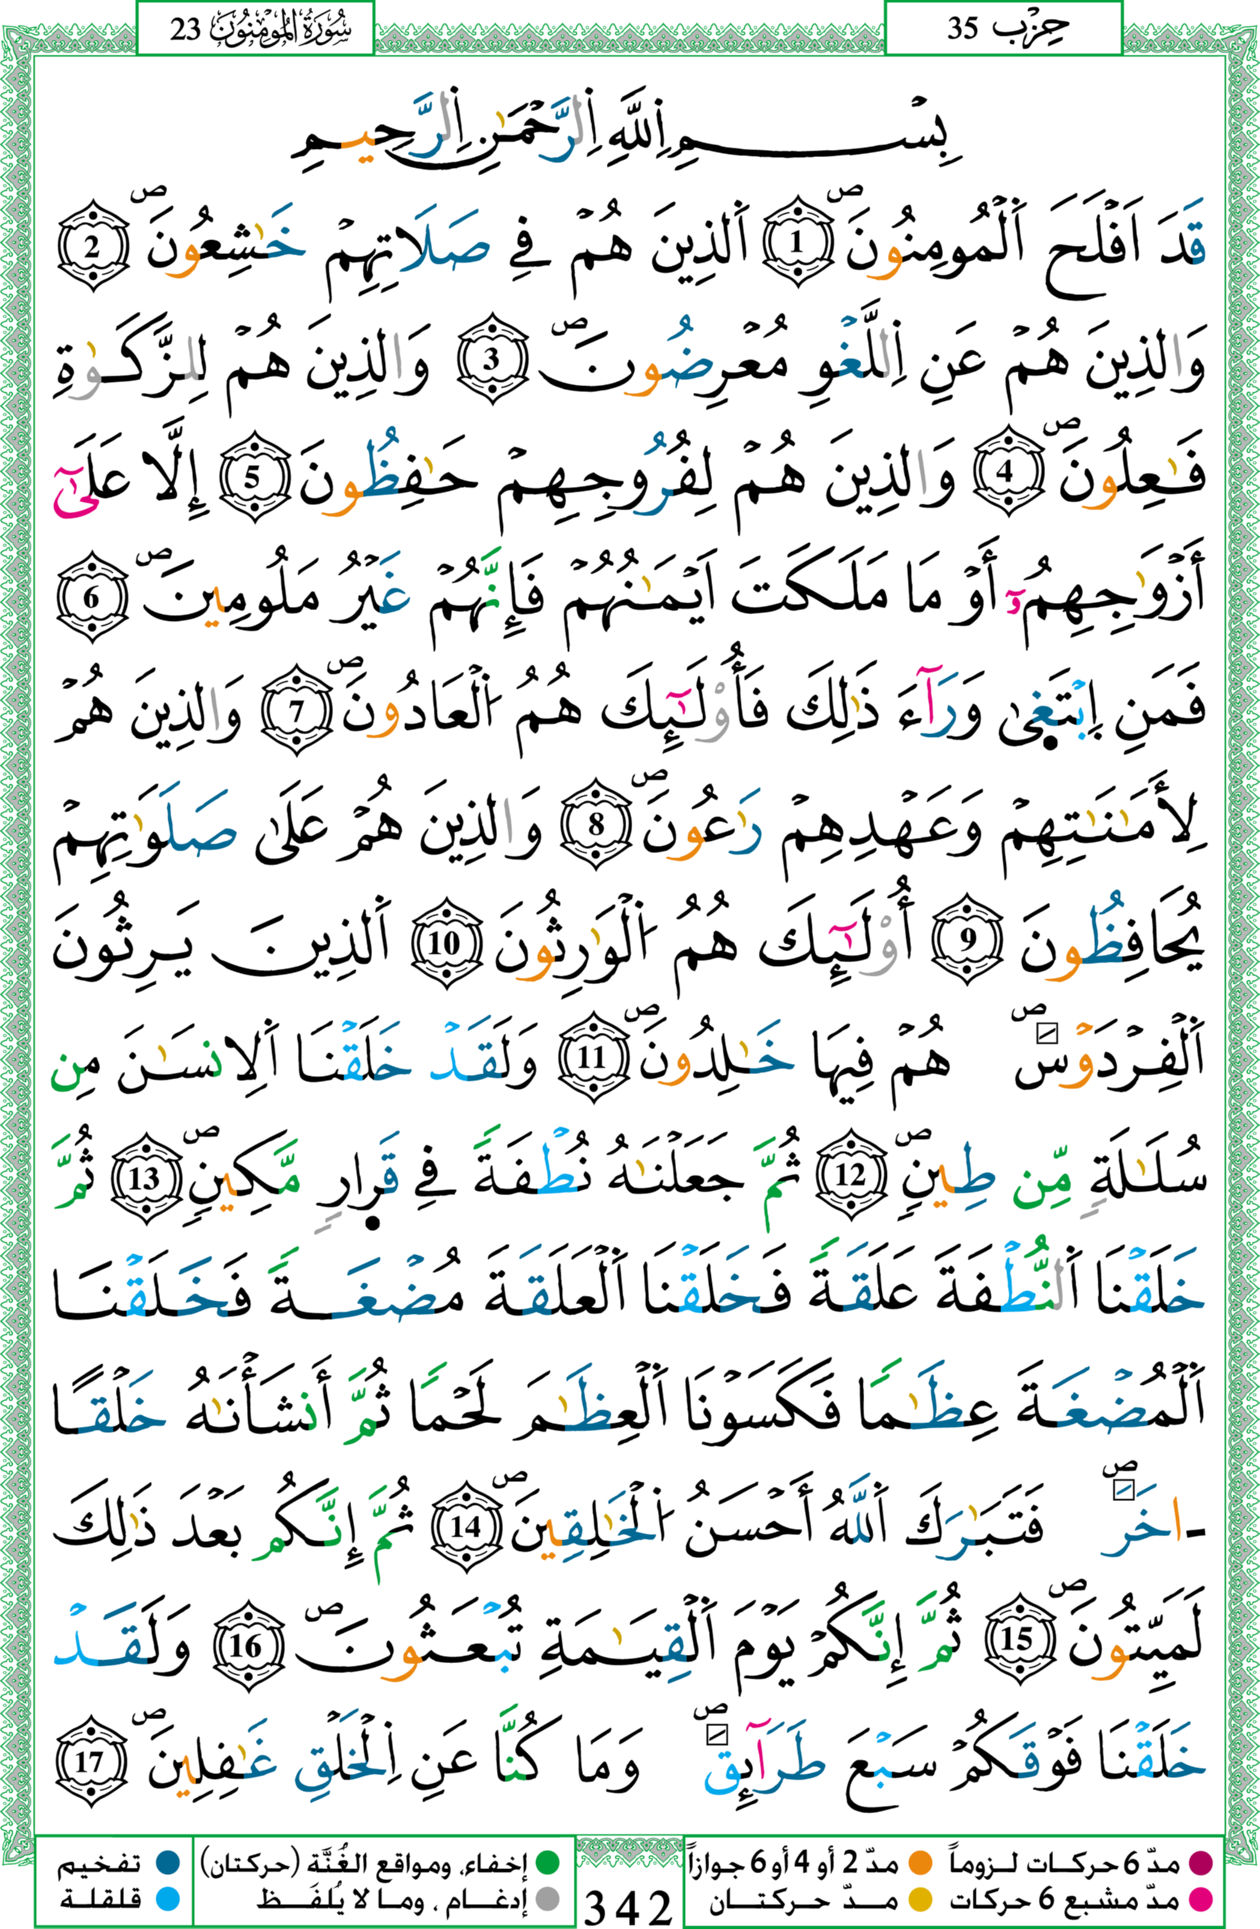 حِزْب 35
سُورَةُ المُومِنُونَ 23
بِسْمِ اِ۬للَّهِ اِ۬لرَّحْمَٰنِ اِ۬لرَّحِيمِ
قَدَ اَفْلَحَ اَ۬لْمُومِنُونَ ۖ 1 اَ۬لذِينَ هُمْ فِے صَلَاتِهِمْ خَٰشِعُونَ ۖ 2
وَالذِينَ هُمْ عَنِ اِ۬للَّغْوِ مُعْرِضُونَ ۖ 3 وَالذِينَ هُمْ لِلزَّكَوٰةِ
فَٰعِلُونَ ۖ 4 وَالذِينَ هُمْ لِفُرُوجِهِمْ حَٰفِظُونَ 5 إِلَّا عَلَىٰٓ
أَزْوَٰجِهِمُۥٓ أَوْ مَا مَلَكَتَ اَيْمَٰنُهُمْ فَإِنَّهُمْ غَيْرُ مَلُومِينَ ۖ 6
فَمَنِ اِ۪بْتَغ۪ىٰ وَرَآءَ ذَٰلِكَ فَأُوْلَٰٓئِكَ هُمُ اُ۬لْعَادُونَ ۖ 7 وَالذِينَ هُمْ
لِأَمَٰنَٰتِهِمْ وَعَهْدِهِمْ رَٰعُونَ ۖ 8 وَالذِينَ هُمْ عَلَىٰ صَلَوَٰتِهِمْ
يُحَافِظُونَ 9 أُوْلَٰٓئِكَ هُمُ اُ۬لْوَٰرِثُونَ 10 اَ۬لذِينَ يَرِثُونَ
اَ۬لْفِرْدَوْسَ ۖ هُمْ فِيهَا خَٰلِدُونَ ۖ 11 وَلَقَدْ خَلَقْنَا اَ۬لِانسَٰنَ مِن
سُلَٰلَةٍ مِّن طِينٍ ۖ 12 ثُمَّ جَعَلْنَٰهُ نُطْفَةً فِے قَر۪ارٍ مَّكِينٍ ۖ 13 ثُمَّ
خَلَقْنَا اَ۬لنُّطْفَةَ عَلَقَةً فَخَلَقْنَا اَ۬لْعَلَقَةَ مُضْغَةً فَخَلَقْنَا
اَ۬لْمُضْغَةَ عِظَٰماً فَكَسَوْنَا اَ۬لْعِظَٰمَ لَحْماً ثُمَّ أَنشَأْنَٰهُ خَلْقاً
ـاخَرَ ۖ فَتَبَٰرَكَ اَ۬للَّهُ أَحْسَنُ اُ۬لْخَٰلِقِينَ ۖ 14 ثُمَّ إِنَّكُم بَعْدَ ذَٰلِكَ
لَمَيِّتُونَ ۖ 15 ثُمَّ إِنَّكُمْ يَوْمَ اَ۬لْقِيَٰمَةِ تُبْعَثُونَ ۖ 16 وَلَقَدْ
خَلَقْنَا فَوْقَكُمْ سَبْعَ طَرَآئِقَ ۖ وَمَا كُنَّا عَنِ اِ۬لْخَلْقِ غَٰفِلِينَ ۖ 17
مدّ 6 حركات لـزوماً مدّ 2 أو 4 أو 6 جوازاً
مدّ مشبع 6 حركات مـدّ حركتـان
342
إخفاء، ومواقع الغُنَّة (حركتان) تفخيم
إدغـام ، ومـا لا يُلفَـظ قلقلة